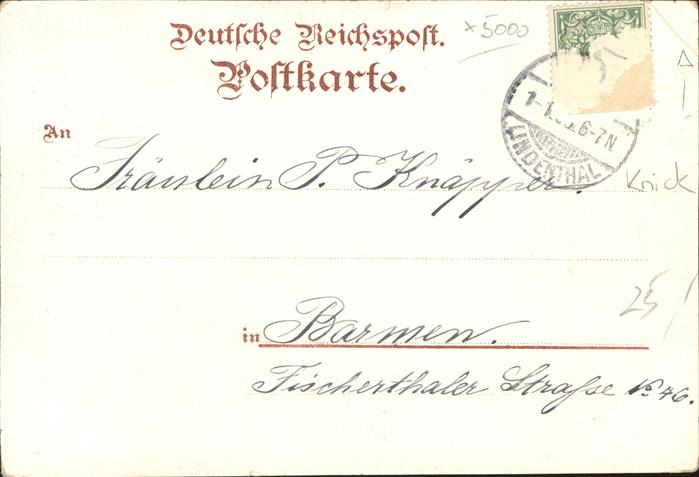 Deutsche Reichspost.
Postkarte.
×5000
6-7N
LINDENTHAL
An
Fräulein P. Knäpper.
Knick
25
in Barmen.
Fischerthaler Straſse No 46.